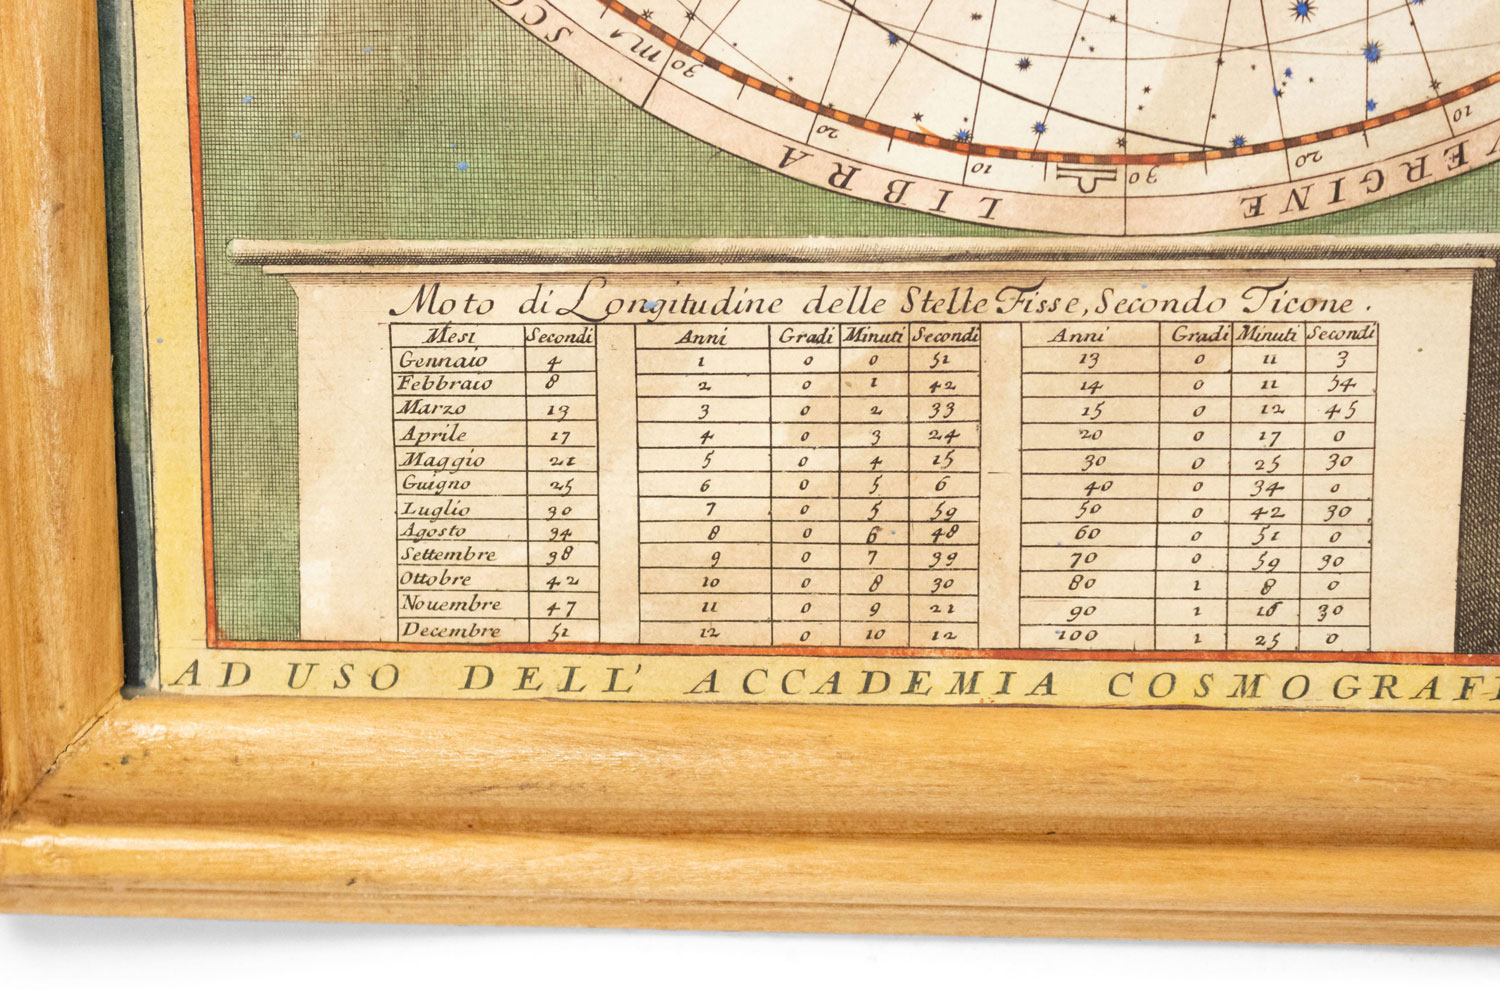 SCO
♏ 30
20
LIBRA
10
♎ 30
20
VERGINE
10
Moto di Longitudine delle Stelle Fisse, Secondo Ticone.
Mesi Secondi Anni Gradi Minuti Secondi Anni Gradi Minuti Secondi
Gennaio 4 1 0 0 51 13 0 11 3
Febbraio 8 2 0 1 42 14 0 11 54
Marzo 13 3 0 2 33 15 0 12 45
Aprile 17 4 0 3 24 20 0 17 0
Maggio 21 5 0 4 15 30 0 25 30
Guigno 25 6 0 5 6 40 0 34 0
Luglio 30 7 0 5 59 50 0 42 30
Agosto 34 8 0 6 48 60 0 51 0
Settembre 38 9 0 7 39 70 0 59 30
Ottobre 42 10 0 8 30 80 1 8 0
Nouembre 47 11 0 9 21 90 1 16 30
Decembre 51 12 0 10 12 100 1 25 0
AD USO DELL' ACCADEMIA COSMOGRAFI